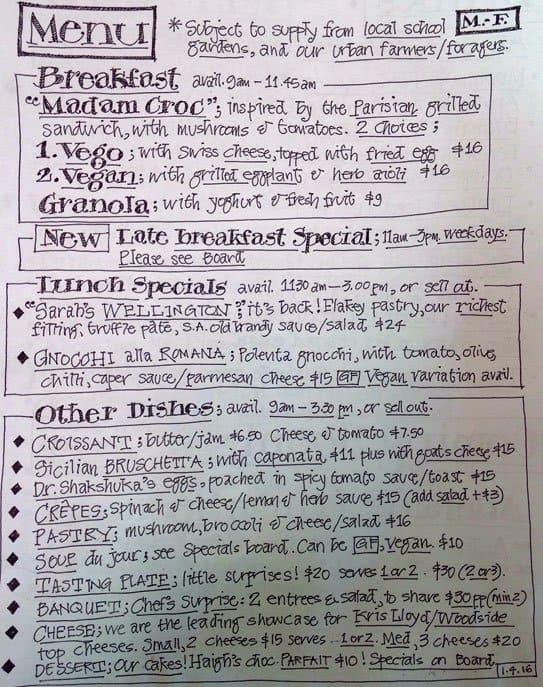 Menu
* Subject to supply from local school M.-F.
gardens, and our urban farmers/foragers.
Breakfast avail. 9am - 11.45am
"Madam Croc"; inspired by the Parisian grilled
sandwich, with mushrooms & tomatoes. 2 choices;
1. Vego; with Swiss cheese, topped with fried egg $16
2. Vegan; with grilled eggplant & herb aioli $16
Granola; with yoghurt & fresh fruit $9
New Late breakfast Special; 11am-3pm. weekdays.
Please see Board
Lunch Specials avail. 1130 am - 3.00 pm, or sell out.
◆ "Sarah's WELLINGTON"; it's back! Flakey pastry, our richest
filling, truffle pâté, S.A. old brandy sauce/salad $24
◆ GNOCCHI alla ROMANA; Polenta gnocchi, with tomato, olive,
chilli, caper sauce/parmesan cheese $15 GF Vegan variation avail.
Other Dishes; avail. 9am - 3.30 pm, or sell out.
◆ CROISSANT; butter/jam $6.50 Cheese & tomato $7.50
◆ Sicilian BRUSCHETTA; with caponata, $11 plus with goats cheese $15
◆ Dr. Shakshuka's eggs, poached in spicy tomato sauce/toast $15
◆ CRÊPES; Spinach & cheese/lemon & herb sauce $15 (add salad +$3)
◆ PASTRY; mushroom, broccoli & cheese/salad $16
◆ SOUP du jour; see Specials board. Can be GF, Vegan. $10
◆ TASTING PLATE; little surprises! $20 serves 1 or 2. $30 (2 or 3).
◆ BANQUET; Chef's Surprise: 2 entrees & salad, to share $30 pp (min 2)
◆ CHEESE; we are the leading showcase for Kris Lloyd/Woodside
top cheeses. Small, 2 cheeses $15 serves .. 1 or 2. Med, 3 cheeses $20
◆ DESSERT; Our cakes! Haigh's choc. PARFAIT $10! Specials on Board
1.4.16